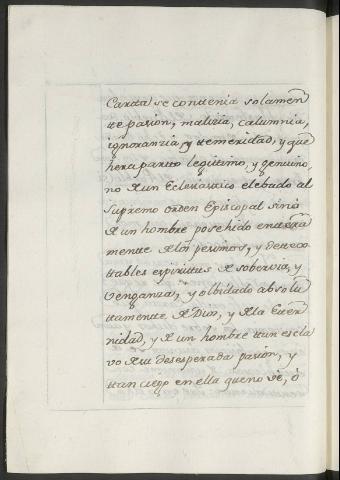 Carta se contenia solamen
te pasion, malizia, calumnia,
ignoranzia, y temeridad, y que
hera parto legitimo, y genuino,
no de un Eclesiastico elebado al
Supremo orden Episcopal sinó
de un hombre posehido entera
mente de los pesimos, y detes
tables espiritus de sobervia, y
venganza, y olbidado absolu
tamente de Dios, y de la Eter
nidad, y de un hombre tan escla
vo de su desesperada pasion, y
tan ciego en ella que no vé, ó